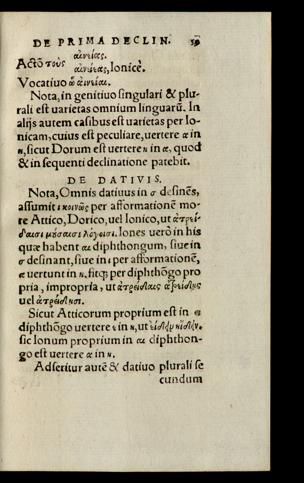 DE PRIMA DECLIN.
αἰνείας.
Actō τοὺς αἰνείας, Ionicè.
Vocatiuo ὦ αἰνεῖαι.
Nota, in genitiuo singulari & plu-
rali est uarietas omnium linguarū. In
alijs autem casibus est uarietas per Io-
nicam, cuius est peculiare, uertere α in
η, sicut Dorum est uertere η in α, quod
& in sequenti declinatione patebit.
DE DATIVIS.
Nota, Omnis datiuus in σ desinēs,
assumit ι κοινῶς per afformationē mo-
re Attico, Dorico, uel Ionico, ut
μύσαισι λόγοισι. Iones uerò in his
quæ habent αι diphthongum, siue in
σ desinant, siue in ι per afformationē,
α uertunt in η, fitq; per diphthōgo pro
pria, impropria, ut
uel
Sicut Atticorum proprium est in
diphthōgo uertere ε in η, ut
sic Ionum proprium in αι diphthon-
go est uertere α in η.
Adseritur autē & datiuo plurali se
cundum